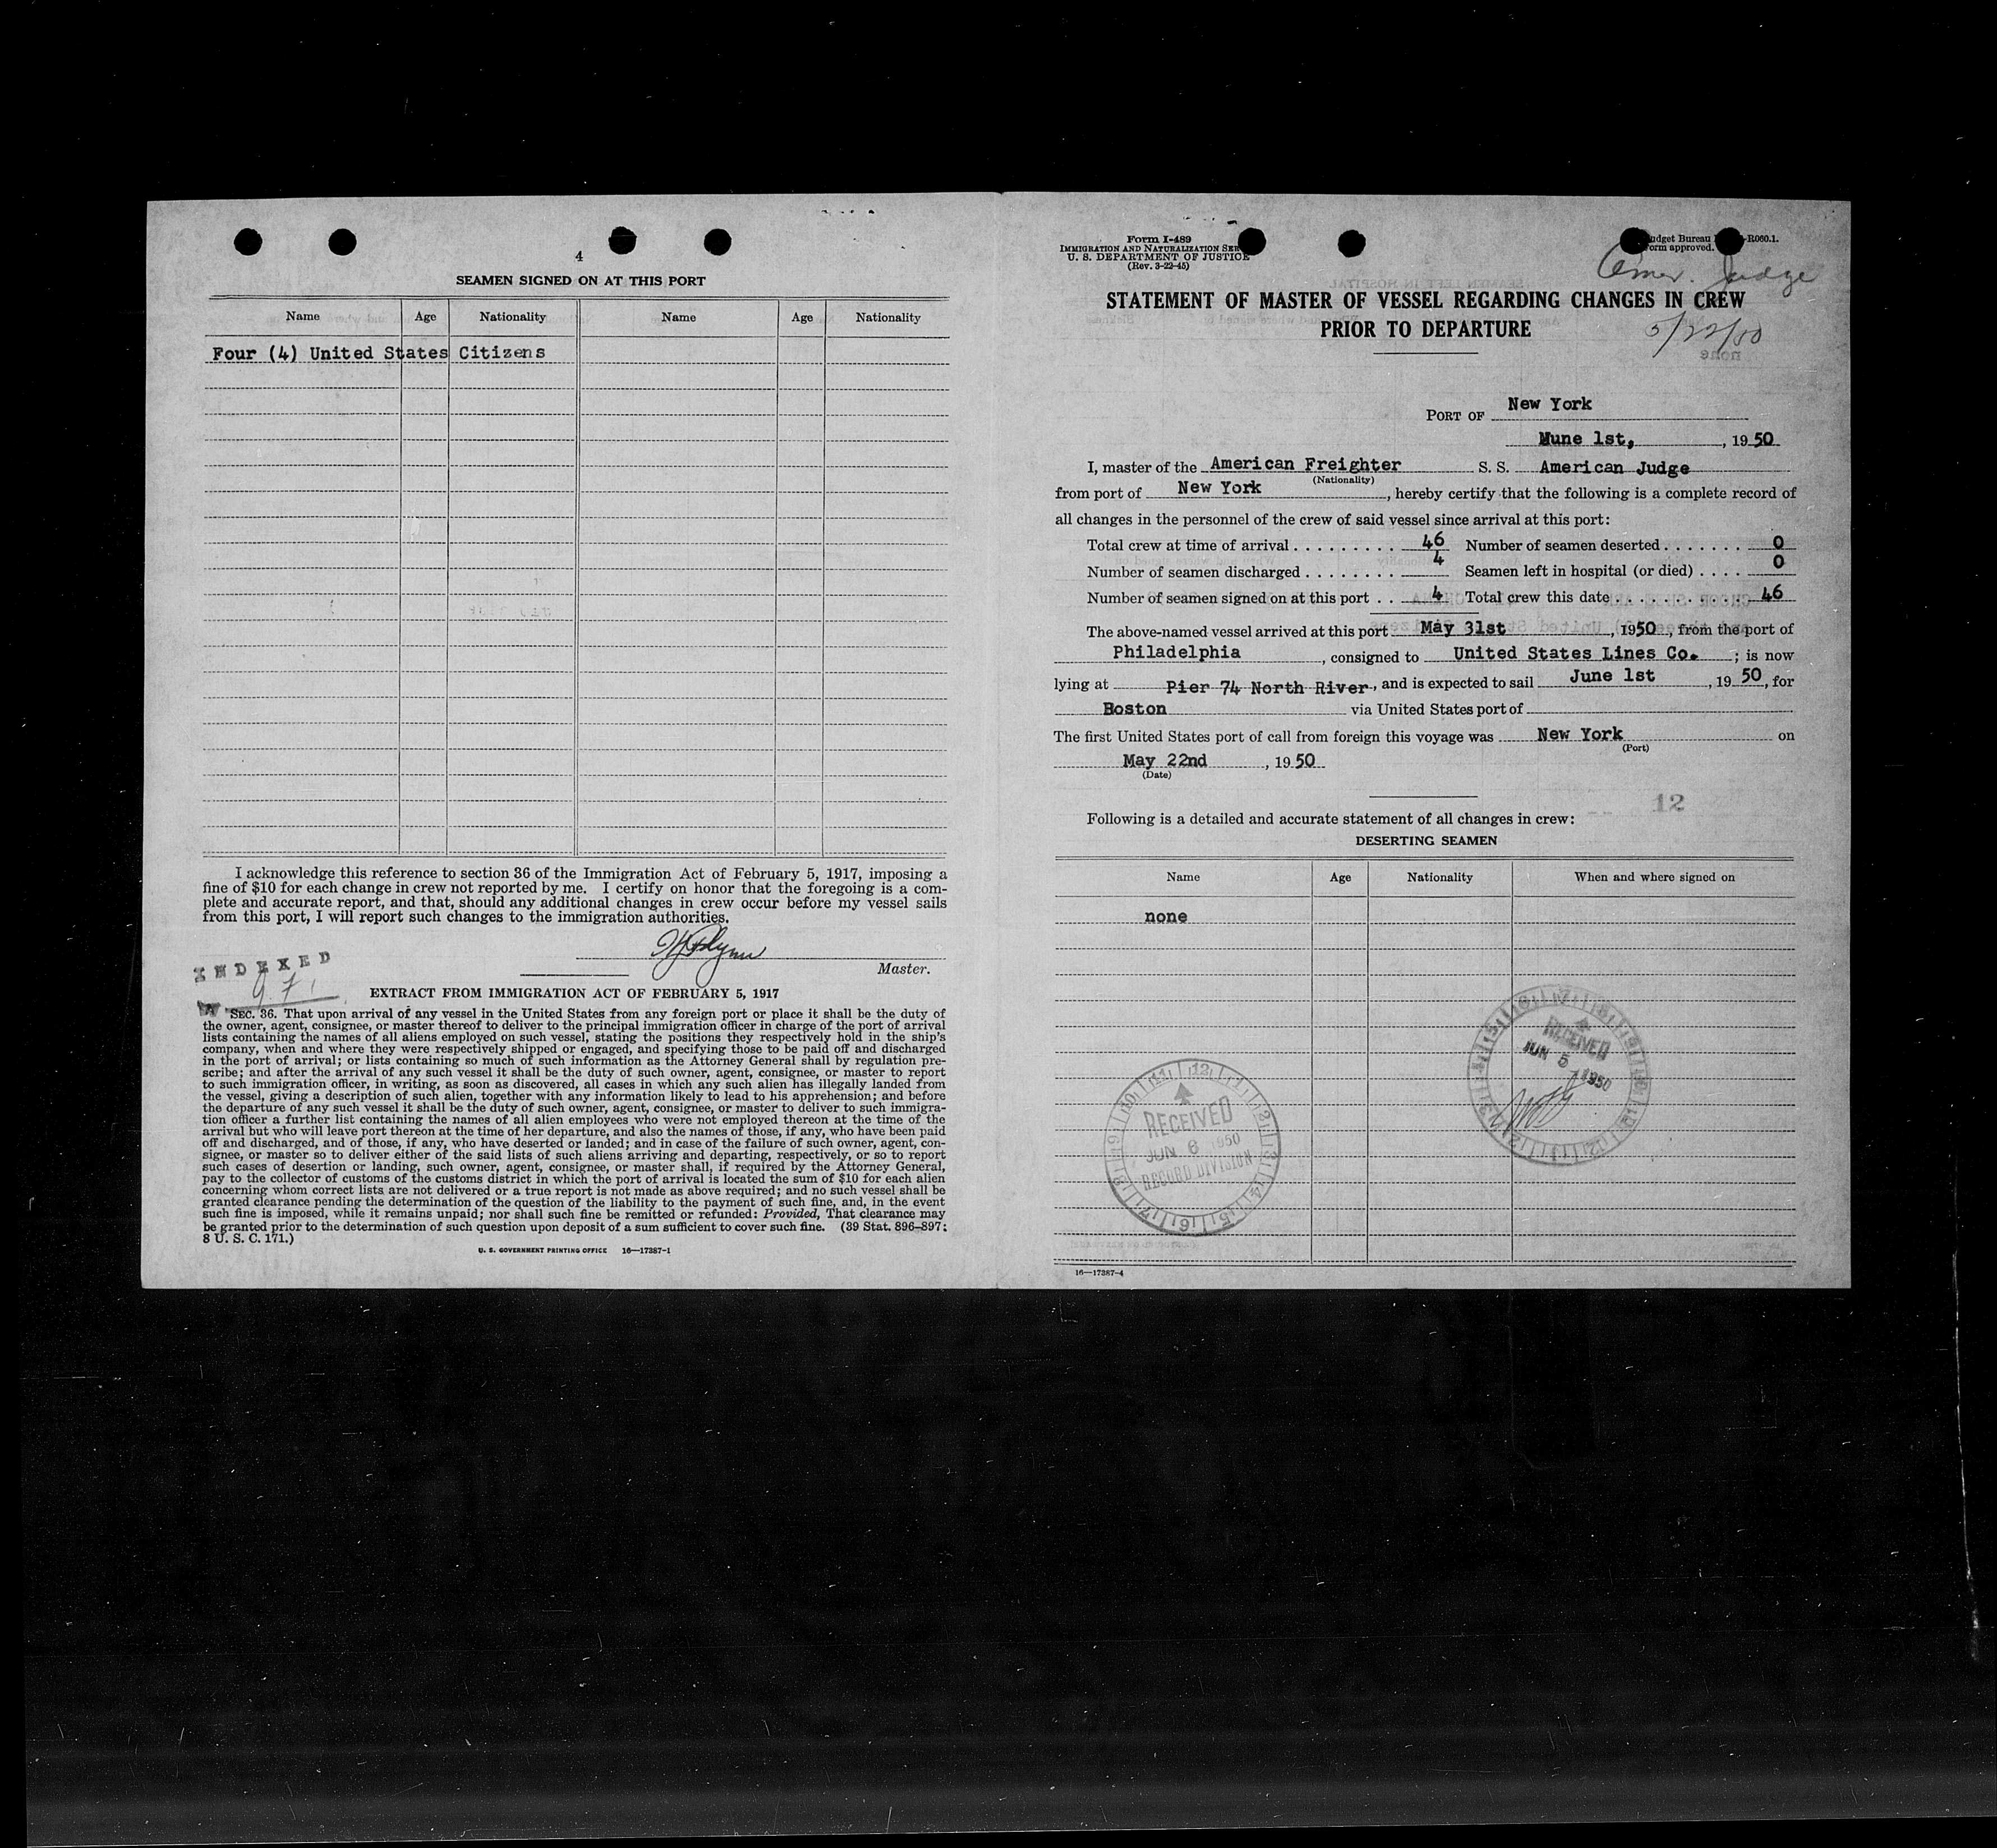 4
SEAMEN SIGNED ON AT THIS PORT
Name Age Nationality Name Age Nationality
Four (4) United States Citizens
I acknowledge this reference to section 36 of the Immigration Act of February 5, 1917, imposing a
fine of $10 for each change in crew not reported by me. I certify on honor that the foregoing is a com-
plete and accurate report, and that, should any additional changes in crew occur before my vessel sails
from this port, I will report such changes to the immigration authorities.
Master.
INDEXED
EXTRACT FROM IMMIGRATION ACT OF FEBRUARY 5, 1917
SEC. 36. That upon arrival of any vessel in the United States from any foreign port or place it shall be the duty of
the owner, agent, consignee, or master thereof to deliver to the principal immigration officer in charge of the port of arrival
lists containing the names of all aliens employed on such vessel, stating the positions they respectively hold in the ship's
company, when and where they were respectively shipped or engaged, and specifying those to be paid off and discharged
in the port of arrival; or lists containing so much of such information as the Attorney General shall by regulation pre-
scribe; and after the arrival of any such vessel it shall be the duty of such owner, agent, consignee, or master to report
to such immigration officer, in writing, as soon as discovered, all cases in which any such alien has illegally landed from
the vessel, giving a description of such alien, together with any information likely to lead to his apprehension; and before
the departure of any such vessel it shall be the duty of such owner, agent, consignee, or master to deliver to such immigra-
tion officer a further list containing the names of all alien employees who were not employed thereon at the time of the
arrival but who will leave port thereon at the time of her departure, and also the names of those, if any, who have been paid
off and discharged, and of those, if any, who have deserted or landed; and in case of the failure of such owner, agent, con-
signee, or master so to deliver either of the said lists of such aliens arriving and departing, respectively, or so to report
such cases of desertion or landing, such owner, agent, consignee, or master shall, if required by the Attorney General,
pay to the collector of customs of the customs district in which the port of arrival is located the sum of $10 for each alien
concerning whom correct lists are not delivered or a true report is not made as above required; and no such vessel shall be
granted clearance pending the determination of the question of the liability to the payment of such fine, and, in the event
such fine is imposed, while it remains unpaid; nor shall such fine be remitted or refunded: Provided, That clearance may
be granted prior to the determination of such question upon deposit of a sum sufficient to cover such fine. (39 Stat. 896–897;
8 U. S. C. 171.)
U. S. GOVERNMENT PRINTING OFFICE 16—17387-1
Form I-489
IMMIGRATION AND NATURALIZATION
U. S. DEPARTMENT OF JUSTICE
(Rev. 3-22-45)
Budget Bureau -R060.1.
Form approved.
Amer. Judge
5/22/50
STATEMENT OF MASTER OF VESSEL REGARDING CHANGES IN CREW
PRIOR TO DEPARTURE
PORT OF New York
Mune 1st, , 19 50
I, master of the American Freighter S. S. American Judge
(Nationality)
from port of New York , hereby certify that the following is a complete record of
all changes in the personnel of the crew of said vessel since arrival at this port:
Total crew at time of arrival . . . . . . . . . 46 Number of seamen deserted . . . . . . . 0
Number of seamen discharged . . . . . . . . 4 Seamen left in hospital (or died) . . . . 0
Number of seamen signed on at this port . . 4 Total crew this date . . . . . . . . . . . . 46
The above-named vessel arrived at this port May 31st , 1950 , from the port of
Philadelphia , consigned to United States Lines Co. ; is now
lying at Pier 74 North River , and is expected to sail June 1st , 19 50 , for
Boston via United States port of
The first United States port of call from foreign this voyage was New York on
(Port)
May 22nd , 19 50
(Date)
12
Following is a detailed and accurate statement of all changes in crew:
DESERTING SEAMEN
Name Age Nationality When and where signed on
none
RECEIVED
JUN 5 1950
RECEIVED
JUN 6 1950
RECORD DIVISION
16—17387-4